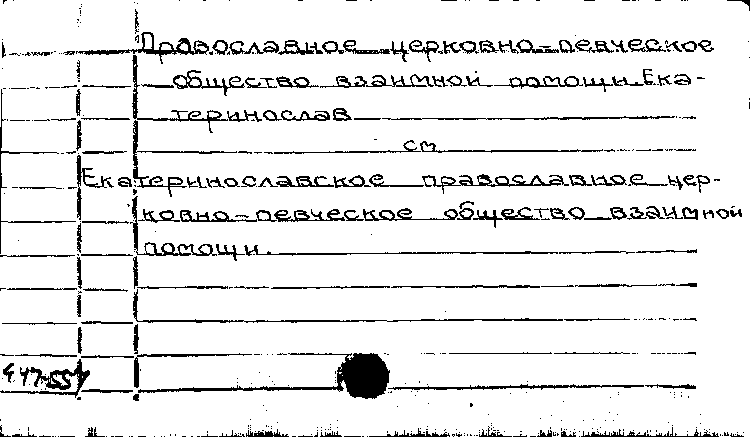 Православное церковно-певческое
общество взаимной помощи. Ека-
теринослав
см
Екатеринославское православное цер-
ковно-певческое общество взаимной
помощи.